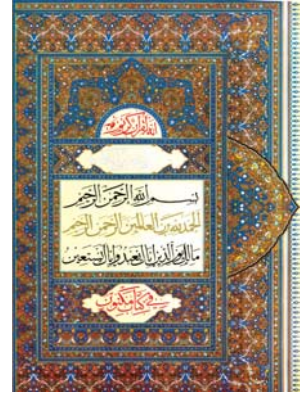 انه لقرآن کریم
بسم الله الرحمن الرحيم
الحمد لله رب العالمين الرحمن الرحيم
مالك يوم الدين اياك نعبد واياك نستعين
في كتاب مكنون